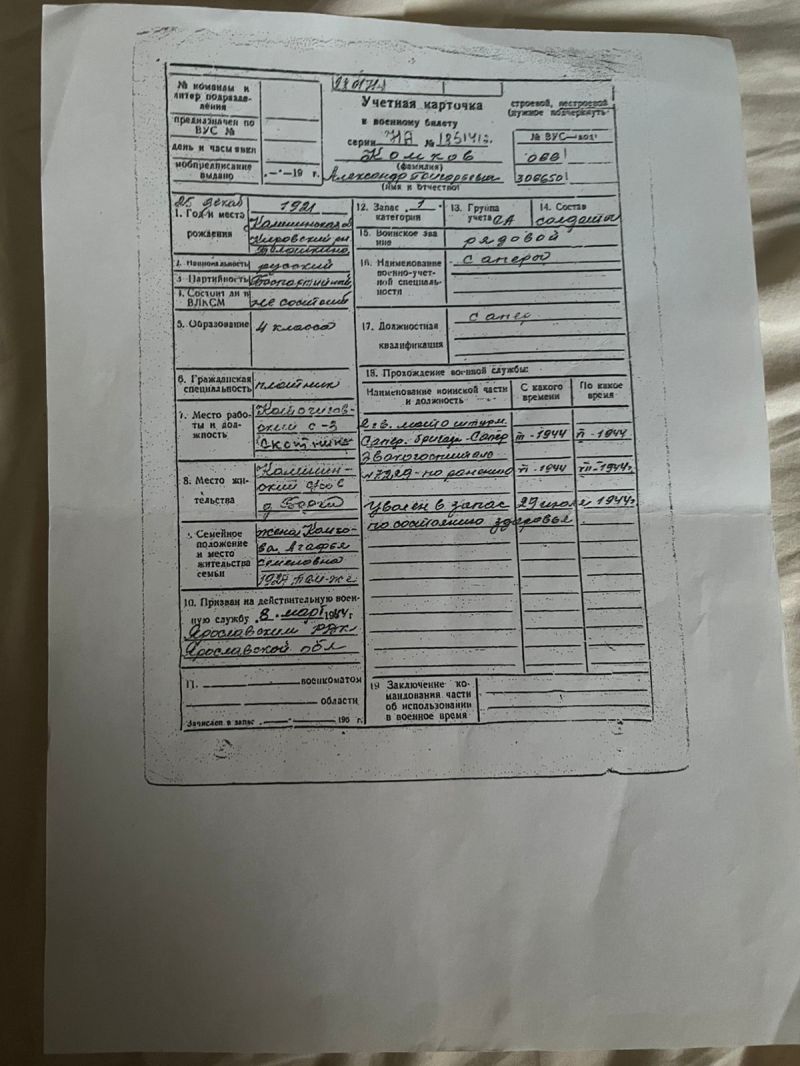 № команды и
литер подразде-
ления
предназначен по
ВУС №
день и часы явки
мобпредписание
выдано
„—“—19 г.
Учетная карточка
к военному билету
серии НД №
Комков
(фамилия)
Александр Григорьевич
(имя и отчество)
строевой, нестроевой
(нужное подчеркнуть)
№ ВУС—
1. Год и место
рождения
25 декаб 1921
Кировский рн
2. Национальность русский
3. Партийность Беспартийный
4. Состоит ли в
ВЛКСМ не состоит
5. Образование 4 класса
6. Гражданская
специальность плотник
7. Место рабо-
ты и дол-
жность
с-з
скотник
8. Место жи-
тельства
Калинин-
ской
д.
9. Семейное
положение
и место
жительства
семьи
жена Комко-
ва Агафья
Семеновна
1927 там-же
10. Призван на действительную воен-
ную службу „8“ март 1944 г
Ярославским РВК
Ярославской обл
11. военкоматом
области
Зачислен в запас „ “ 196 г.
12. Запас 1
категории
13. Группа
учета СА
14. Состав
солдаты
15. Воинское зва-
ние рядовой
16. Наименование
военно-учет-
ной специаль-
ности
саперы
17. Должностная
квалификация
сапер
18. Прохождение военной службы:
Наименование воинской части
и должность
С какого
времени
По какое
время
штурм
Сапер. бригада Сапер 1944 1944
Эвакогоспиталь
по ранению 1944 1944г.
Уволен в запас 29 июля 1944г
по состоянию здоровья
19 Заключение ко-
мандования части
об использовании
в военное время